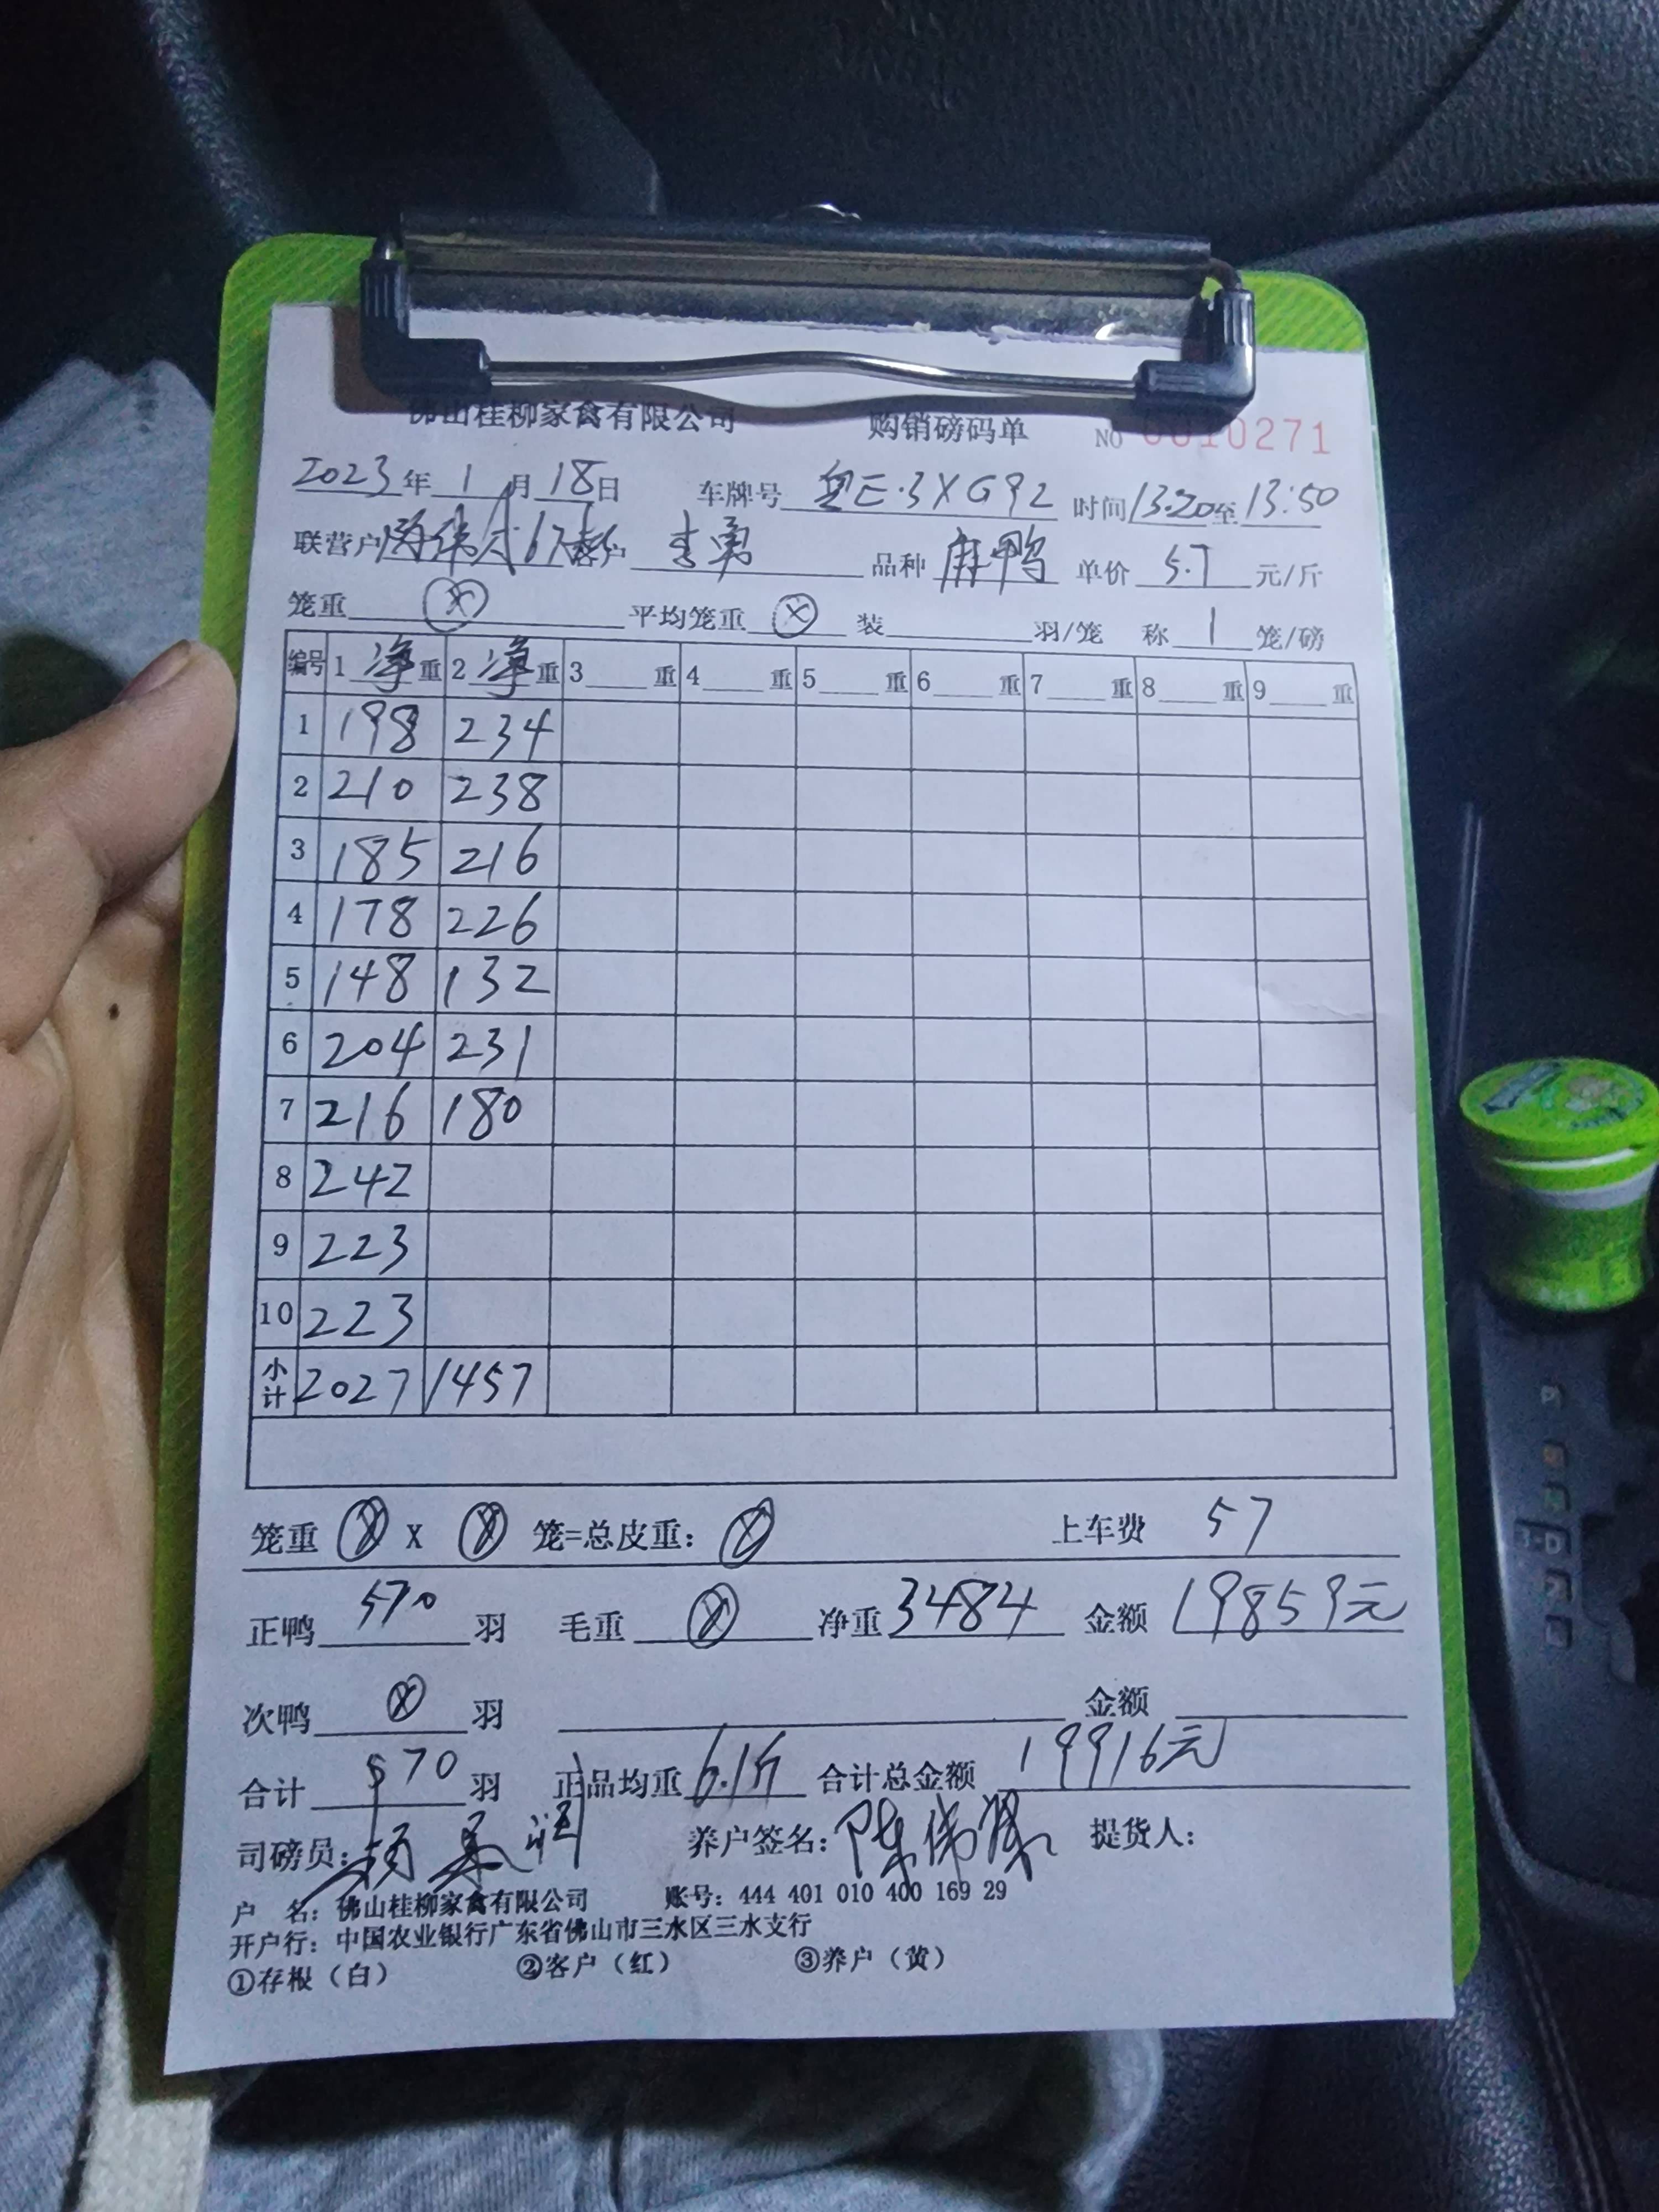 佛山桂柳家禽有限公司 购销磅码单 NO 0010271
2023年1月18日 车牌号 粤E·3XG92 时间13:20至13:50
联营户 客户 李勇 品种 麻鸭 单价 5.7 元/斤
笼重 ⊗ 平均笼重 ⊗ 装 羽/笼 称 1 笼/磅
编号 1 净重 2 净重 3 重 4 重 5 重 6 重 7 重 8 重 9 重
1 198 234
2 210 238
3 185 216
4 178 226
5 148 132
6 204 231
7 216 180
8 242
9 223
10 223
小计 2027 1457
笼重 ⊗ X ⊗ 笼=总皮重: ⊗ 上车费 57
正鸭 570 羽 毛重 ⊗ 净重 3484 金额 19859元
次鸭 ⊗ 羽 金额
合计 570 羽 正品均重 6.1斤 合计总金额 19916元
司磅员: 养户签名: 提货人:
户 名: 佛山桂柳家禽有限公司 账号: 444 401 010 400 169 29
开户行: 中国农业银行广东省佛山市三水区三水支行
①存根（白） ②客户（红） ③养户（黄）